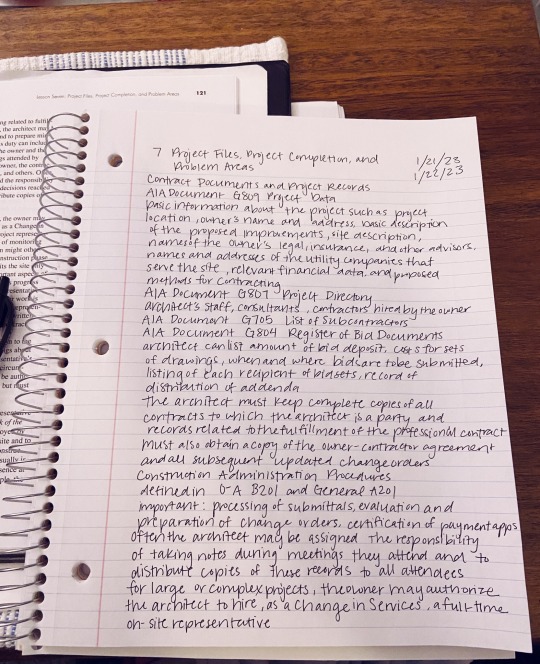 Lesson Seven: Project Files, Project Completion, and Problem Areas 121
ng related to fulfil
, the architect ma
nd to prepare mi
s duty can inclu
he owner and the
gs attended by
owner, the contr
, and others. O
d the responsib
decisions reach
tribute copies o
the owner may
as a Change
oject represe
of monitorin
n might othe
nstruction p
its the site
7 Project Files, Project Completion, and
Problem Areas
1/21/23
1/22/23
Contract Documents and Project Records
AIA Document G809 Project Data
basic information about the project such as project
location, owner's name and address, basic description
of the proposed improvements, site description,
names of the owner's legal, insurance, and other advisors,
names and addresses of the utility companies that
serve the site, relevant financial data, and proposed
methods for contracting
AIA Document G807 Project Directory
architect's staff, consultants, contractors hired by the owner
AIA Document G705 List of Subcontractors
AIA Document G804 Register of Bid Documents
architect can list amount of bid deposit, costs for sets
of drawings, when and where bids are to be submitted,
listing of each recipient of bid sets, record of
distribution of addenda
the architect must keep complete copies of all
contracts to which the architect is a party and
records related to the fulfillment of the professional contract
Must also obtain a copy of the owner-contractor agreement
and all subsequent updated change orders
Construction Administration Procedures
defined in O-A B201 and General A201
important: processing of submittals, evaluation and
preparation of change orders, certification of payment apps
often the architect may be assigned the responsibility
of taking notes during meetings they attend and to
distribute copies of these records to all attendees
for large or complex projects, the owner may authorize
the architect to hire, as a Change in Services, a full-time
on-site representative